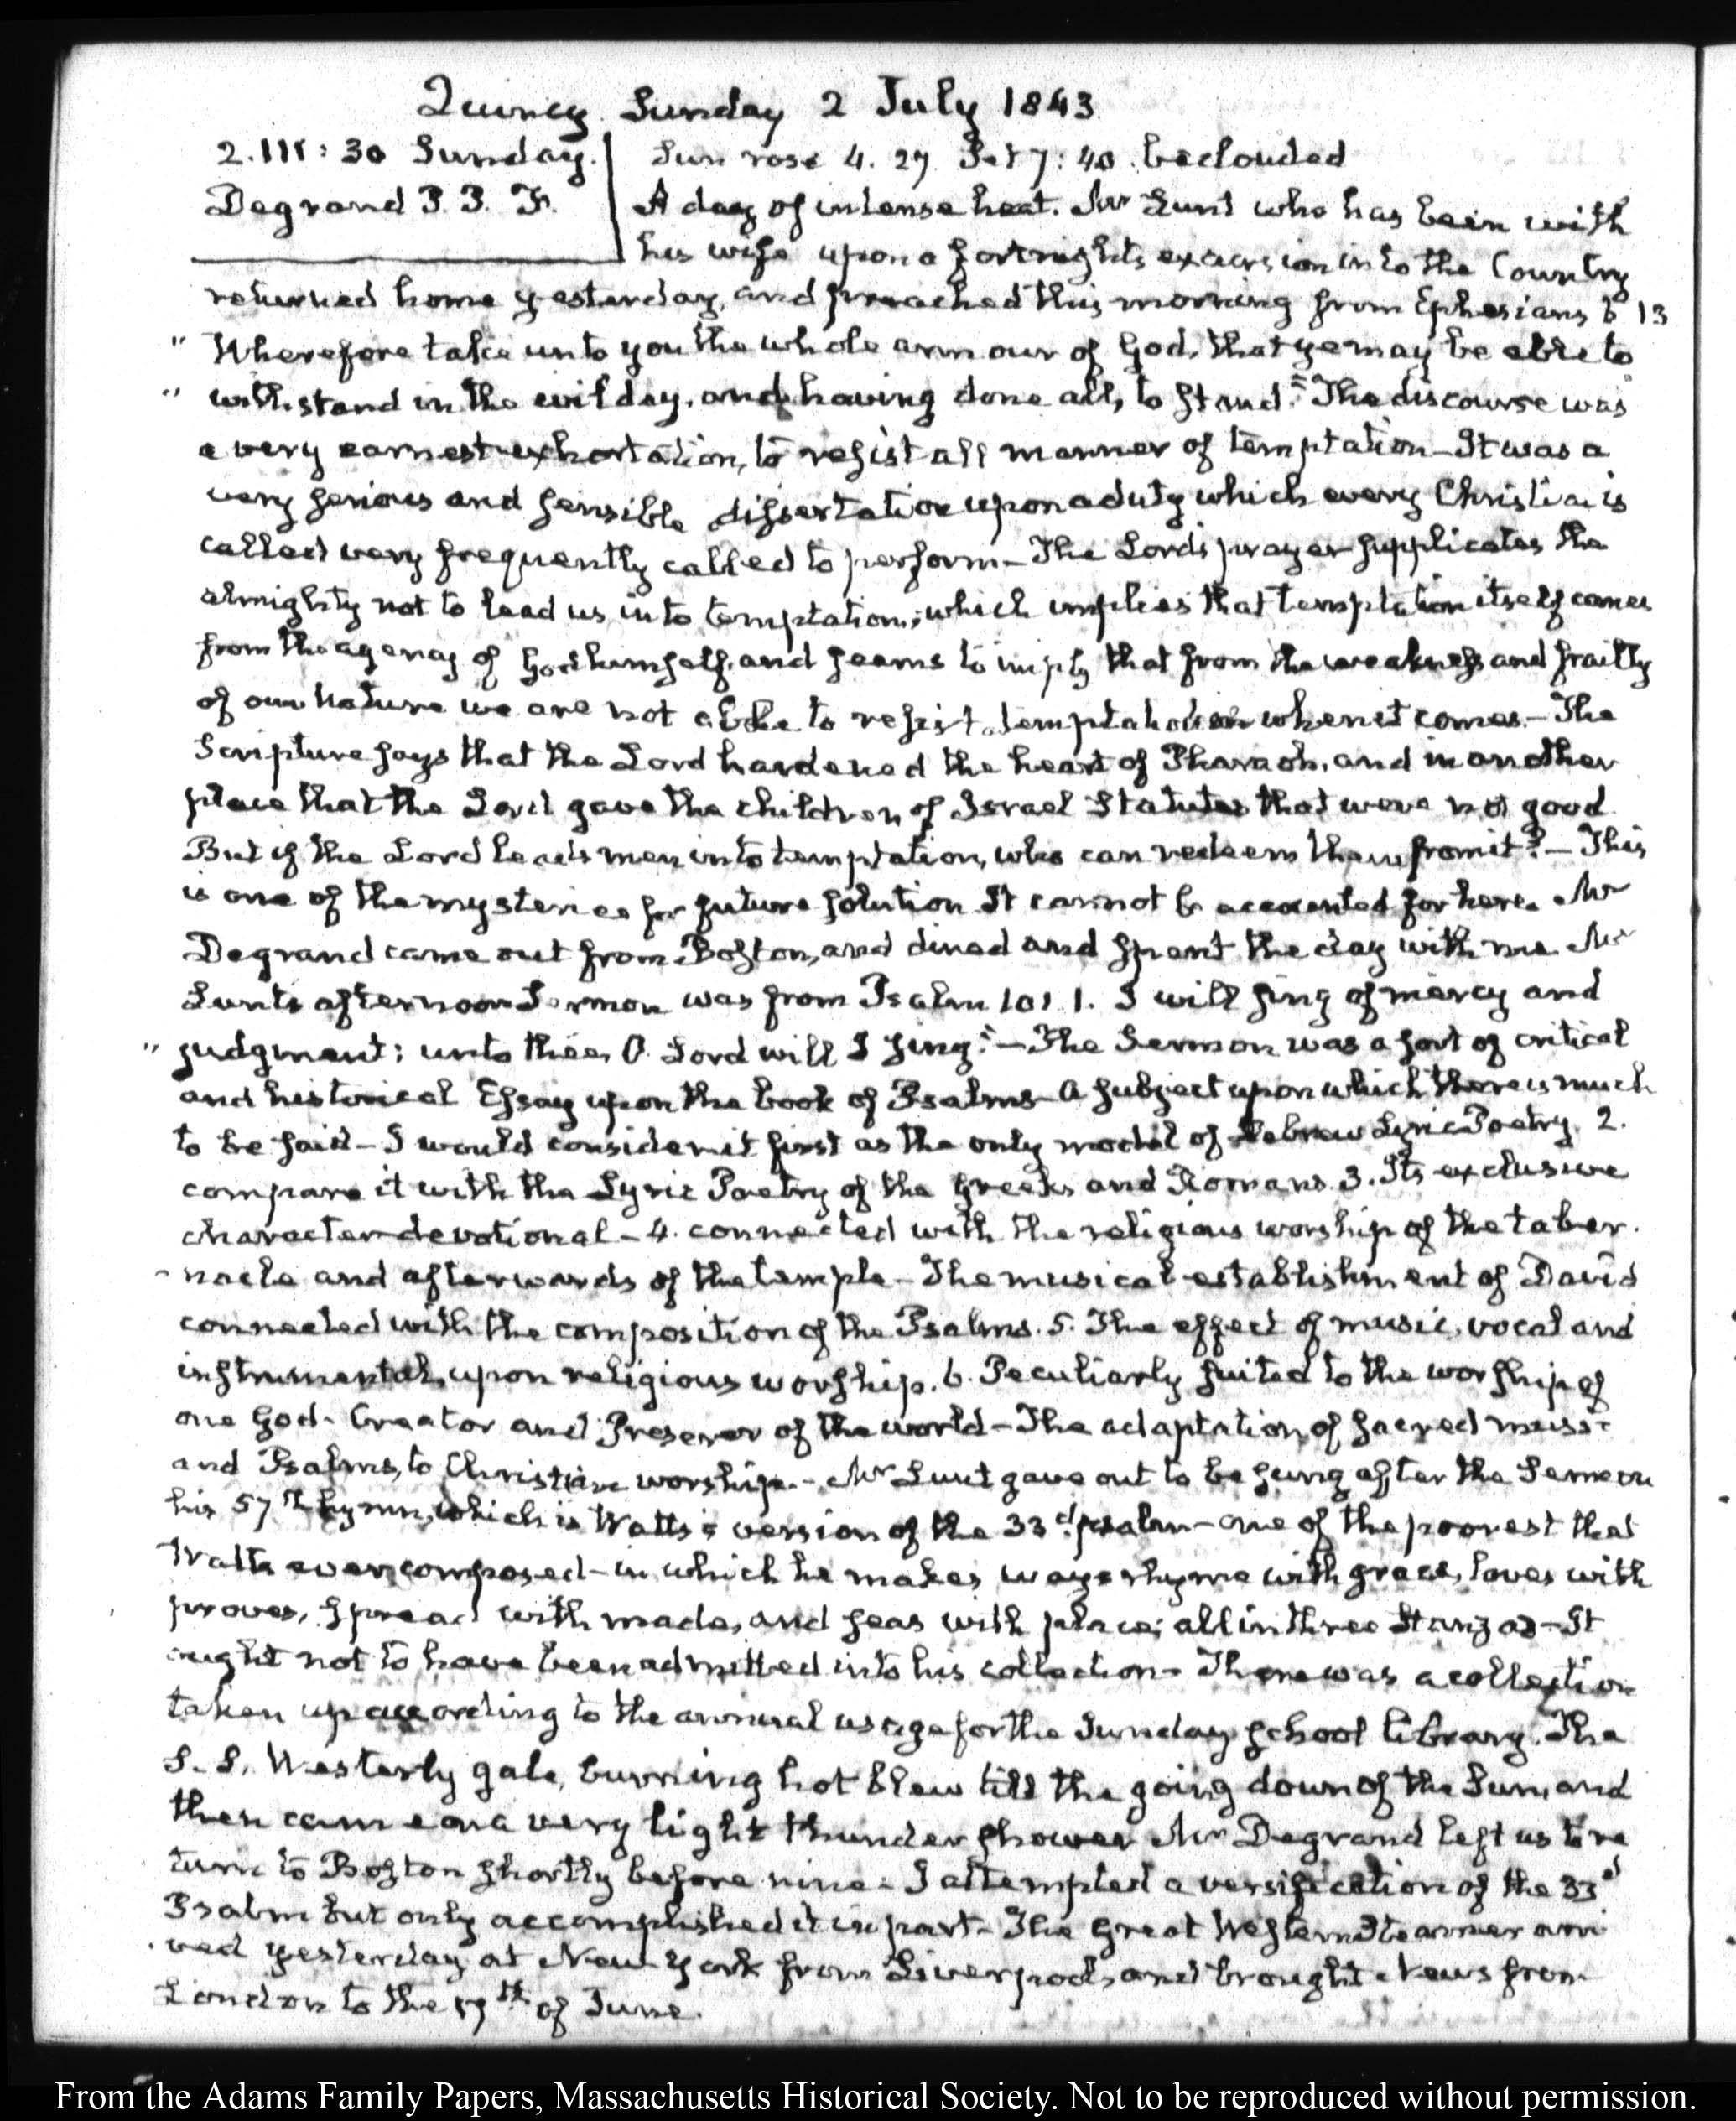 Quincy Sunday 2 July 1843
2. III: 30 Sunday.
Degrand P. P. F.
Sun rose 4. 27 Set 7: 40. beclouded
A day of intense heat. Mr Lunt who has been with
his wife upon a fortnight's excursion into the Country
returned home yesterday, and preached this morning from Ephesians 6 13
" Wherefore take unto you the whole armour of God, that ye may be able to
" withstand in the evil day, and having done all, to stand." The discourse was
a very earnest exhortation, to resist all manner of temptation - It was a
very serious and sensible dissertation upon a duty which every Christian is
called very frequently called to perform - The Lord's prayer supplicates the
almighty not to lead us into temptation; which implies that temptation itself comes
from the agency of God himself, and seems to imply that from the weakness and frailty
of our nature we are not able to resist temptation when it comes. - The
Scripture says that the Lord hardened the heart of Pharaoh, and in another
place that the Lord gave the children of Israel Statutes that were not good
But if the Lord leads men into temptation, who can redeem them from it? - This
is one of the mysteries for future solution It cannot be accounted for here. Mr
Degrand came out from Boston, and dined and spent the day with me Mr
Lunt's afternoon Sermon was from Psalm 101. 1. I will sing of mercy and
" judgment: unto thee, O Lord will I sing." - The Sermon was a sort of critical
and historical Essay upon the book of Psalms - A subject upon which there is much
to be said - I would consider it first as the only model of Hebrew Lyric Poetry. 2.
compare it with the Lyric Poetry of the Greeks and Romans. 3. Its exclusive
character devotional - 4. connected with the religious worship of the taber-
- nacle and afterwards of the temple - The musical establishment of David
connected with the composition of the Psalms. 5. The effect of music, vocal and
instrumental, upon religious worship. 6. Peculiarly suited to the worship of
one God - Creator and Preserver of the world - The adaptation of sacred music
and Psalms, to Christian worship. - Mr Lunt gave out to be sung after the Sermon
his 57th hymn, which is Watts's version of the 33d. psalm - one of the poorest that
Watts ever composed - in which he makes ways rhyme with grace, loves with
proves, spread with made, and seas with place; all in three Stanzas - It
ought not to have been admitted into his collection - There was a collection
taken up according to the annual usage for the Sunday school library. The
S. S. Westerly gale, burning hot blew till the going down of the Sun, and
then came on a very light thunder shower Mr Degrand left us to re
turn to Boston shortly before nine - I attempted a versification of the 33d
Psalm but only accomplished it in part - The Great Western Steamer arri
ved yesterday at New-York from Liverpool, and brought News from
London to the 17th of June.
From the Adams Family Papers, Massachusetts Historical Society. Not to be reproduced without permission.